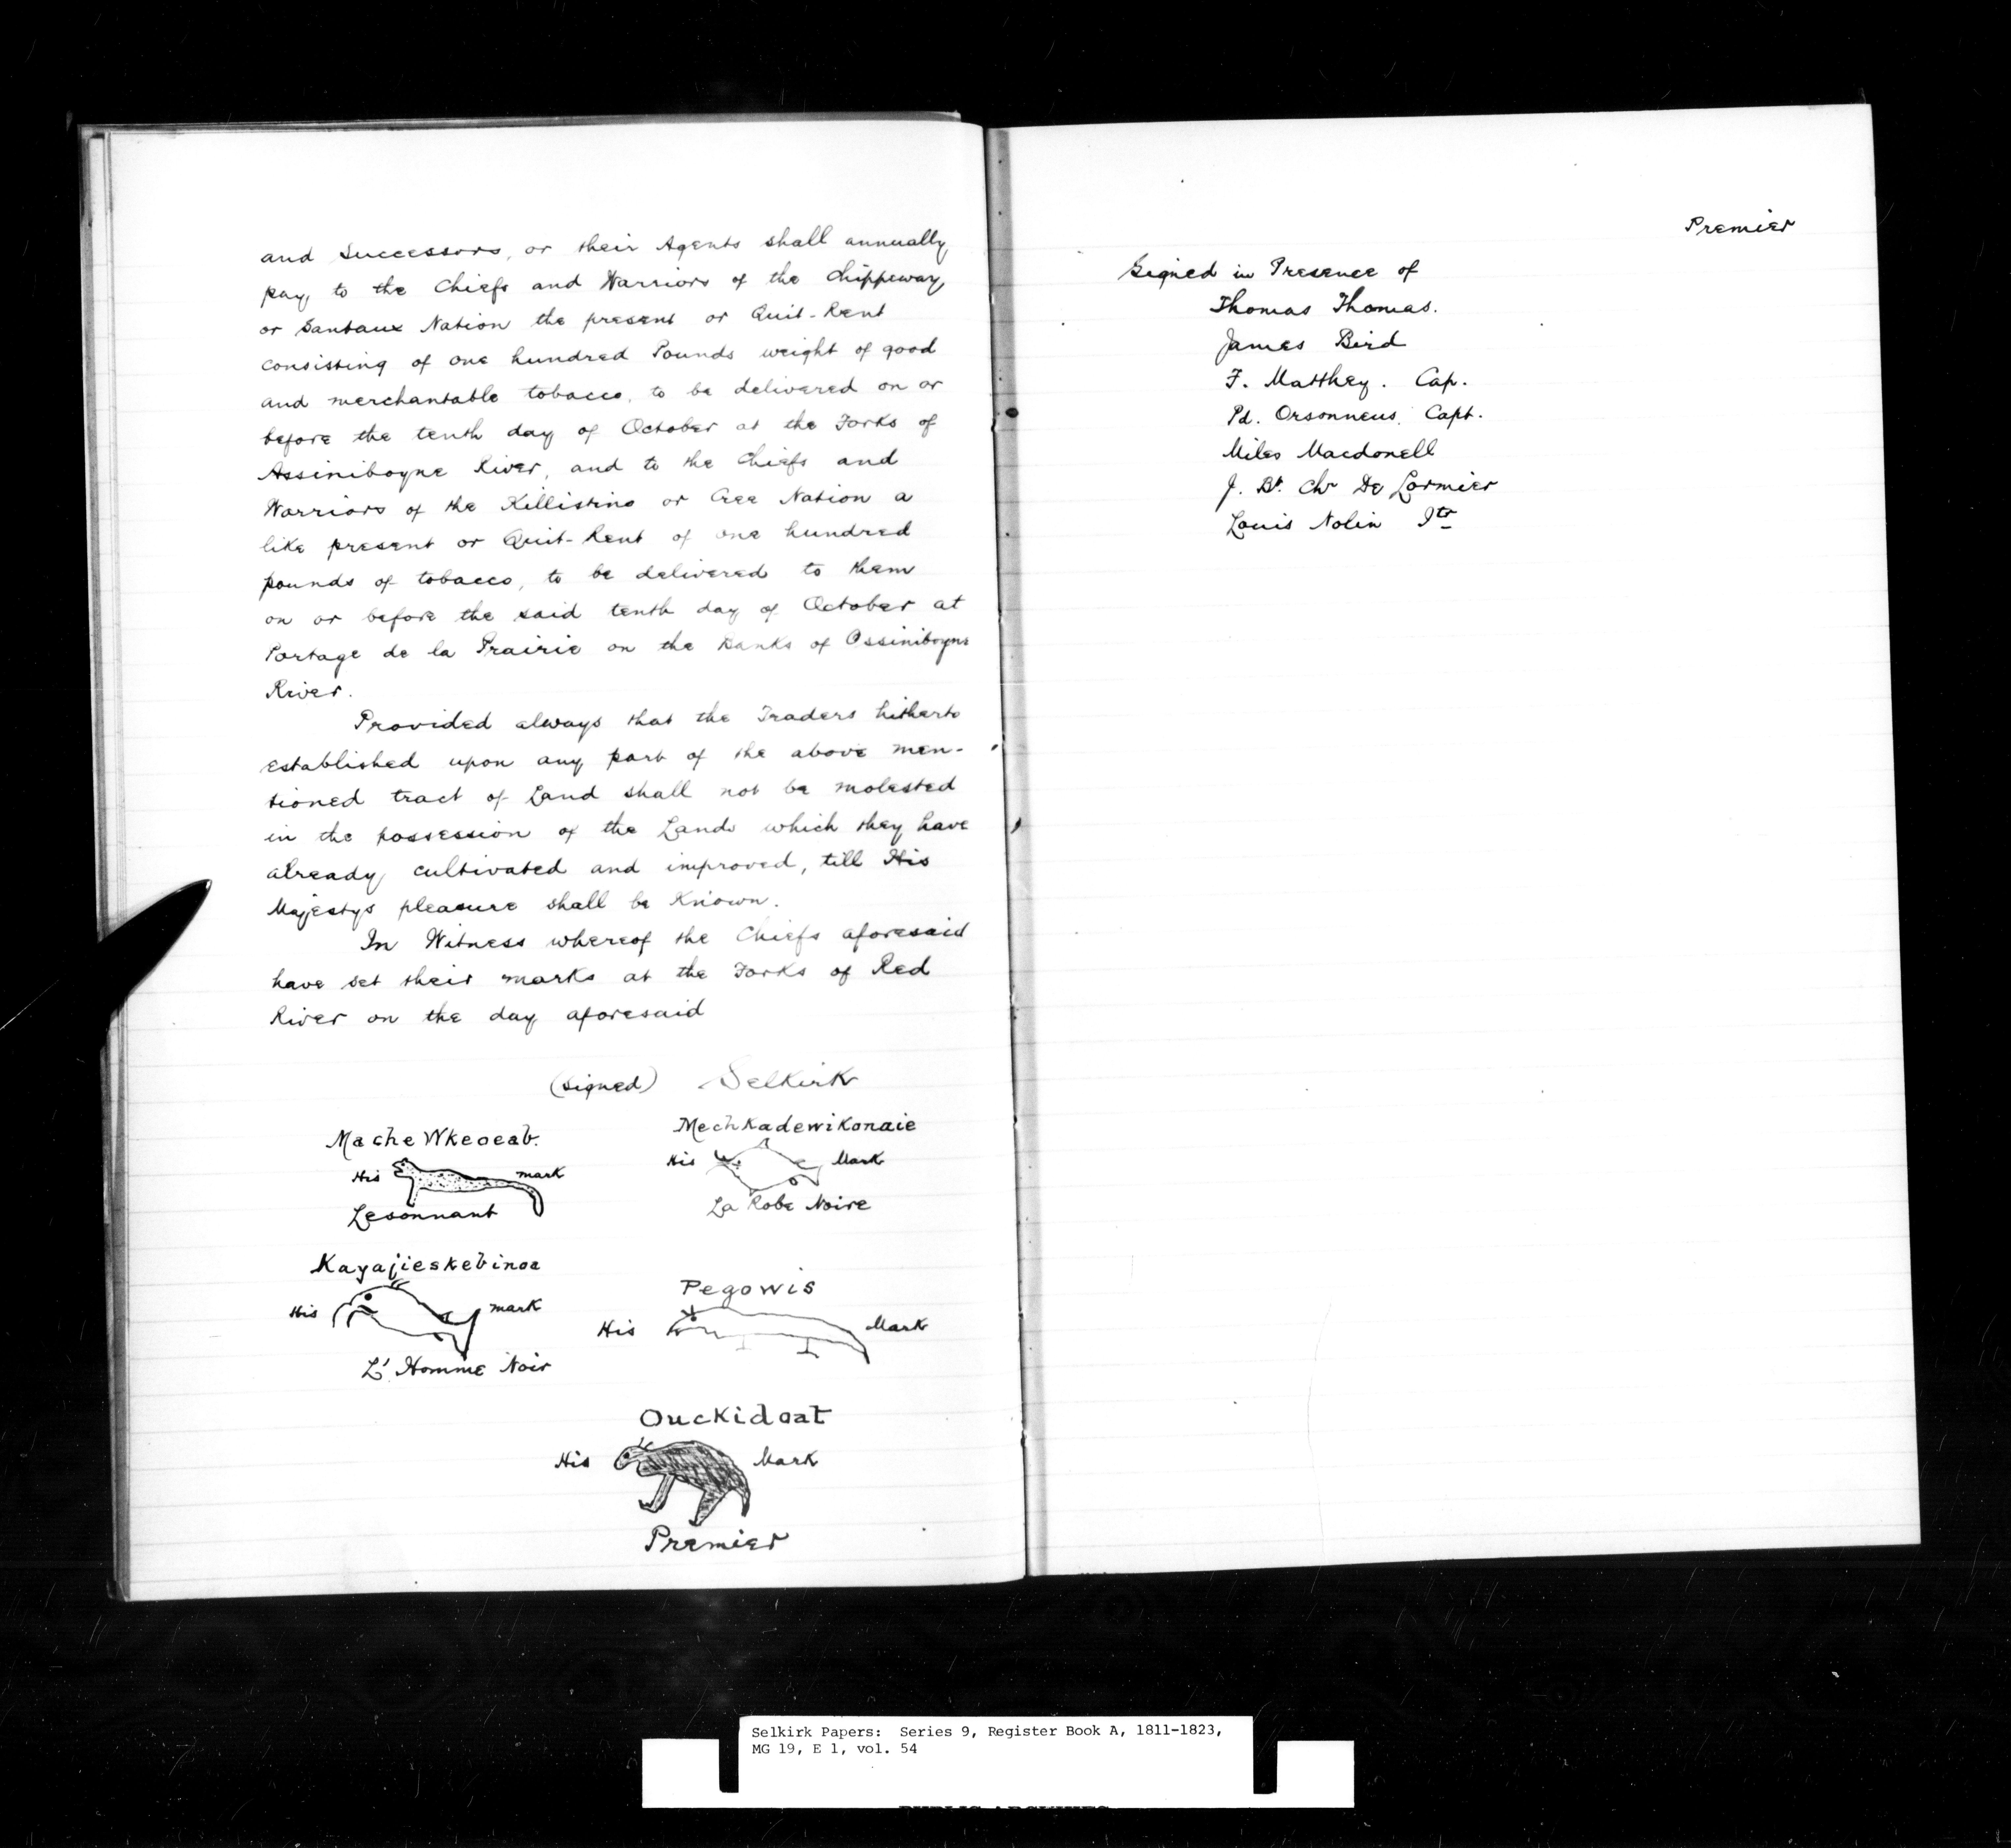 and Successors, or their Agents shall annually
pay to the Chiefs and Warriors of the Chippeway
or Santaux Nation the present or Quit-Rent
consisting of one hundred Pounds weight of good
and merchantable tobacco, to be delivered on or
before the tenth day of October at the Forks of
Assiniboyne River, and to the Chiefs and
Warriors of the Killistino or Cree Nation a
like present or Quit-Rent of one hundred
pounds of tobacco, to be delivered to them
on or before the said tenth day of October at
Portage de la Prairie on the Banks of Ossiniboyne
River.
Provided always that the Traders hitherto
established upon any part of the above men-
tioned tract of Land shall not be molested
in the possession of the Lands which they have
already cultivated and improved, till His
Majestys pleasure shall be Known.
In Witness whereof the Chiefs aforesaid
have set their marks at the Forks of Red
River on the day aforesaid
(Signed) Selkirk
Mache Wkeoeab.
His mark
Lesonnant
Mechkadewikonaie
His Mark
La Robe Noire
Kayajieskebinoa
His mark
L'Homme Noir
Pegowis
His Mark
Ouckidoat
His Mark
Premier
Premier
Signed in Presence of
Thomas Thomas.
James Bird
F. Matthey. Cap.
Pd. Orsonneus. Capt.
Miles Macdonell
J. Bt. Chr De Lormier
Louis Nolin Itr
Selkirk Papers: Series 9, Register Book A, 1811-1823,
MG 19, E 1, vol. 54